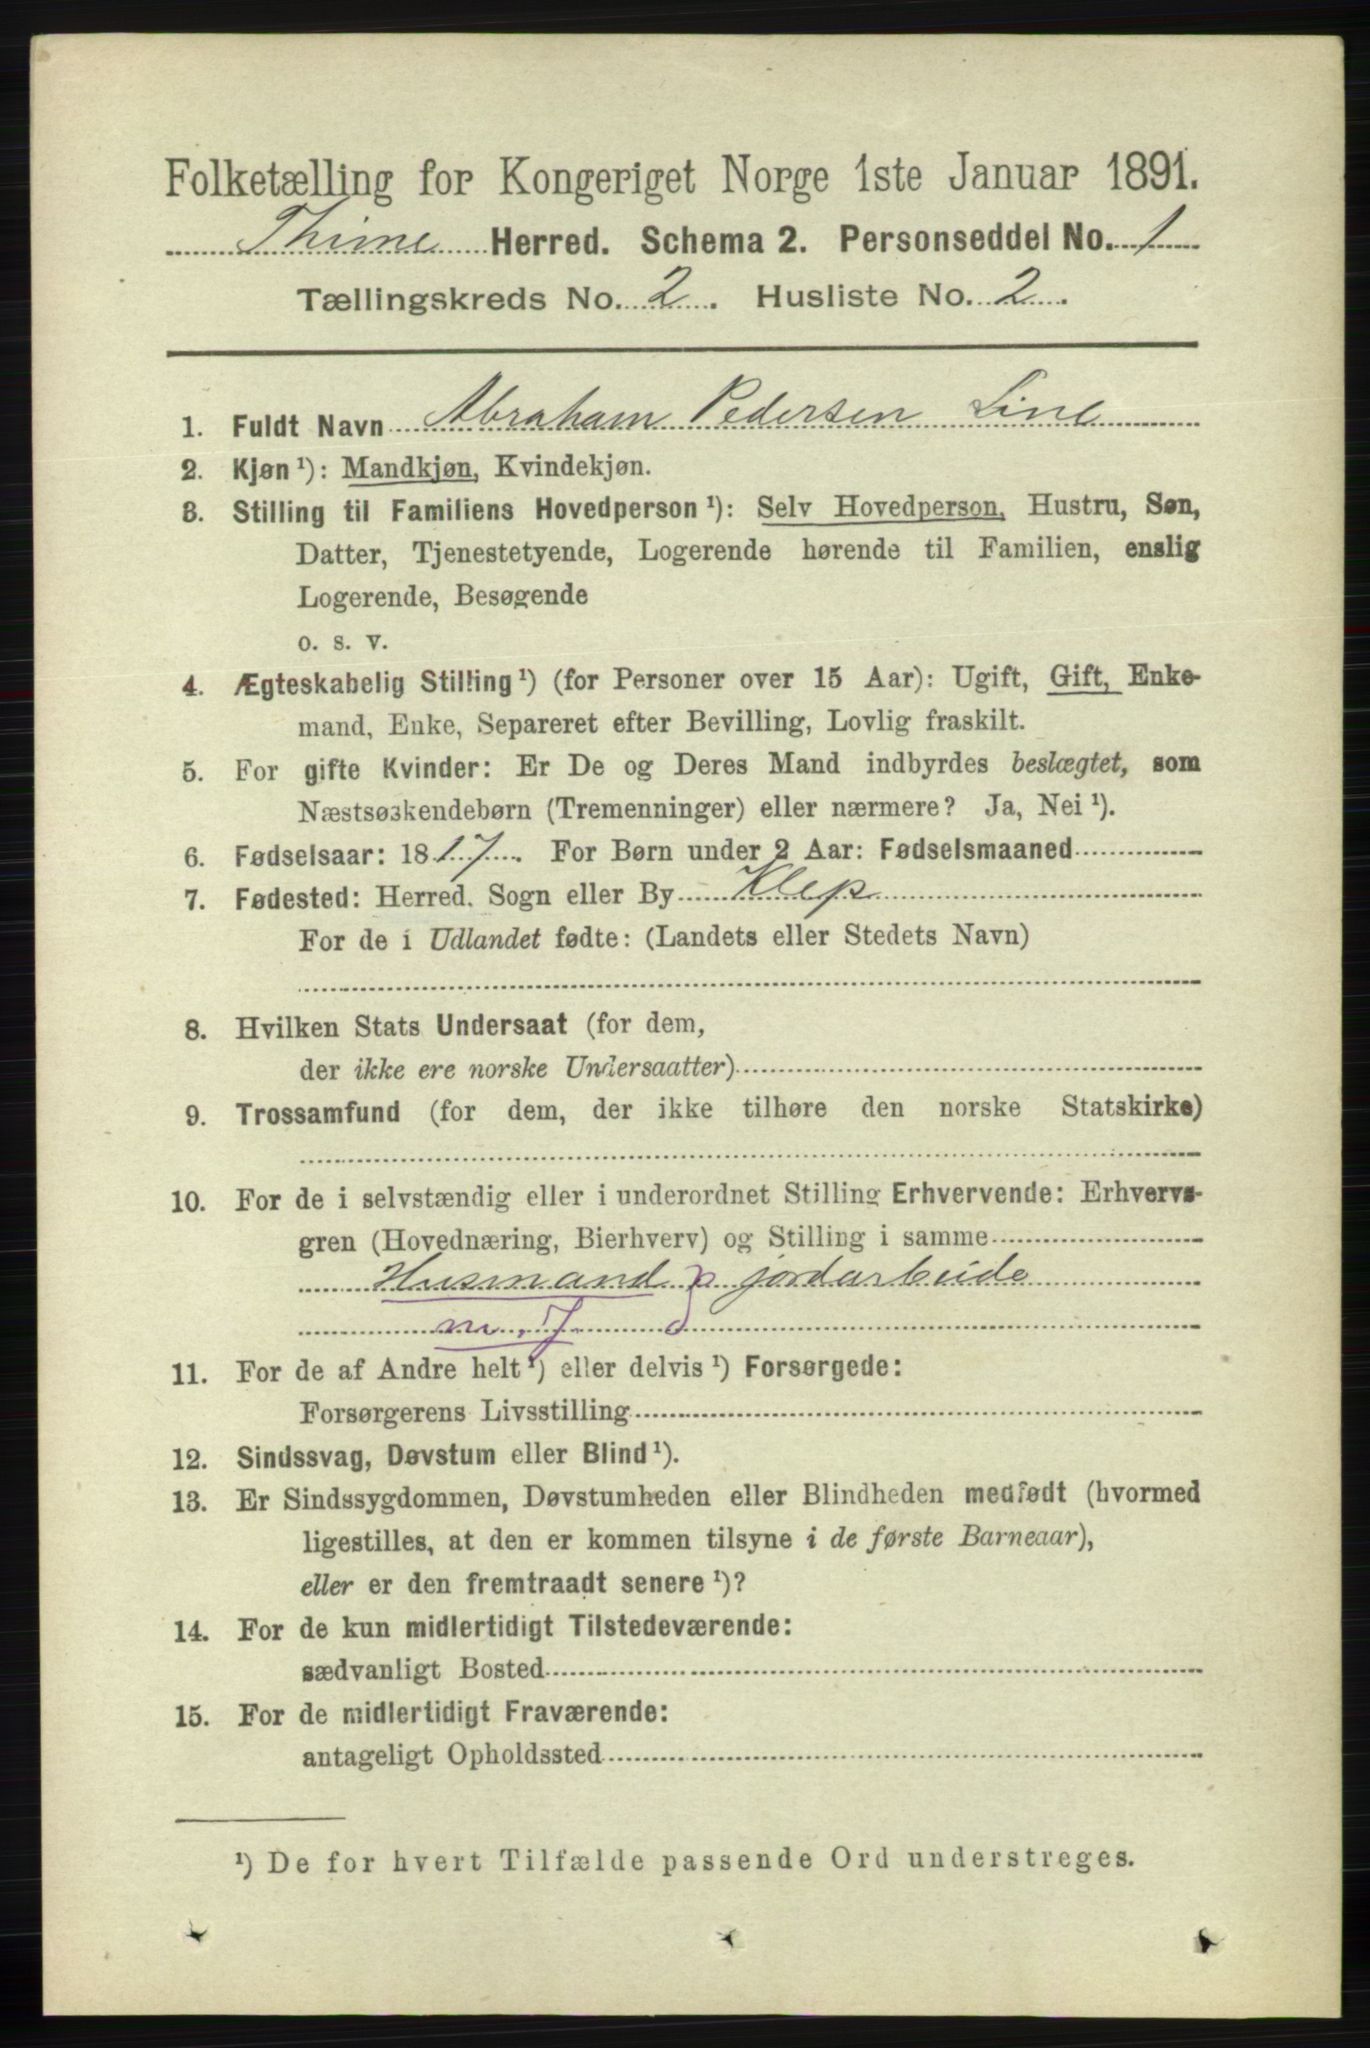 Folketælling for Kongeriget Norge 1ste Januar 1891.
Thime Herred. Schema 2. Personseddel No. 1
Tællingskreds No. 2. Husliste No. 2.
1. Fuldt Navn Abraham Pedersen Line
2. Kjøn ¹): Mandkjøn, Kvindekjøn.
3. Stilling til Familiens Hovedperson ¹): Selv Hovedperson, Hustru, Søn,
Datter, Tjenestetyende, Logerende hørende til Familien, enslig
Logerende, Besøgende
o. s. v.
4. Ægteskabelig Stilling ¹) (for Personer over 15 Aar): Ugift, Gift, Enke-
mand, Enke, Separeret efter Bevilling, Lovlig fraskilt.
5. For gifte Kvinder: Er De og Deres Mand indbyrdes beslægtet, som
Næstsøskendebørn (Tremenninger) eller nærmere? Ja, Nei ¹).
6. Fødselsaar: 1817. For Børn under 2 Aar: Fødselsmaaned
7. Fødested: Herred. Sogn eller By Klep
For de i Udlandet fødte: (Landets eller Stedets Navn)
8. Hvilken Stats Undersaat (for dem,
der ikke ere norske Undersaatter)
9. Trossamfund (for dem, der ikke tilhøre den norske Statskirke)
10. For de i selvstændig eller i underordnet Stilling Erhvervende: Erhvervs-
gren (Hovednæring, Bierhverv) og Stilling i samme
Husmand p jordarbeide
m. J
11. For de af Andre helt ¹) eller delvis ¹) Forsørgede:
Forsørgerens Livsstilling
12. Sindssvag, Døvstum eller Blind ¹).
13. Er Sindssygdommen, Døvstumheden eller Blindheden medfødt (hvormed
ligestilles, at den er kommen tilsyne i de første Barneaar),
eller er den fremtraadt senere ¹)?
14. For de kun midlertidigt Tilstedeværende:
sædvanligt Bosted
15. For de midlertidigt Fraværende:
antageligt Opholdssted
¹) De for hvert Tilfælde passende Ord understreges.